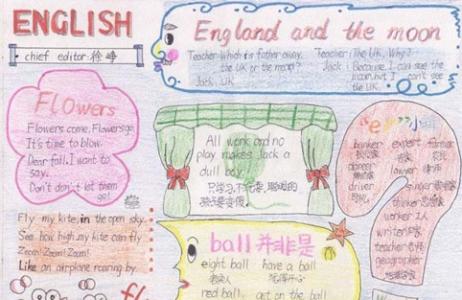 ENGLISH
chief editor:徐峥
England and the moon
Teacher: Which is father away,
the UK or the moon?
Jack: UK
Teacher: The UK, Why?
Jack: Because I can see the
moon, but I can't see
the UK.
Flowers
Flowers come, Flowers go.
It's time to blow.
Dear fall, I want to
say.
Don't don't let them
go!
All work and no
play makes Jack a
dull boy
只学习,不玩耍,聪明的
孩子变傻
"er"
banker
expert
farmer
dancer
driver
singer
thinker
worker 工人
writer 作家
teacher 老师
geographer
Fly my kite in the open sky.
See how high my kite can fly
Zoom! Zoom! Zoom!
Like an airplane roaring by.
ball 并非是
eight ball
have a ball
red ball,
get on the ball